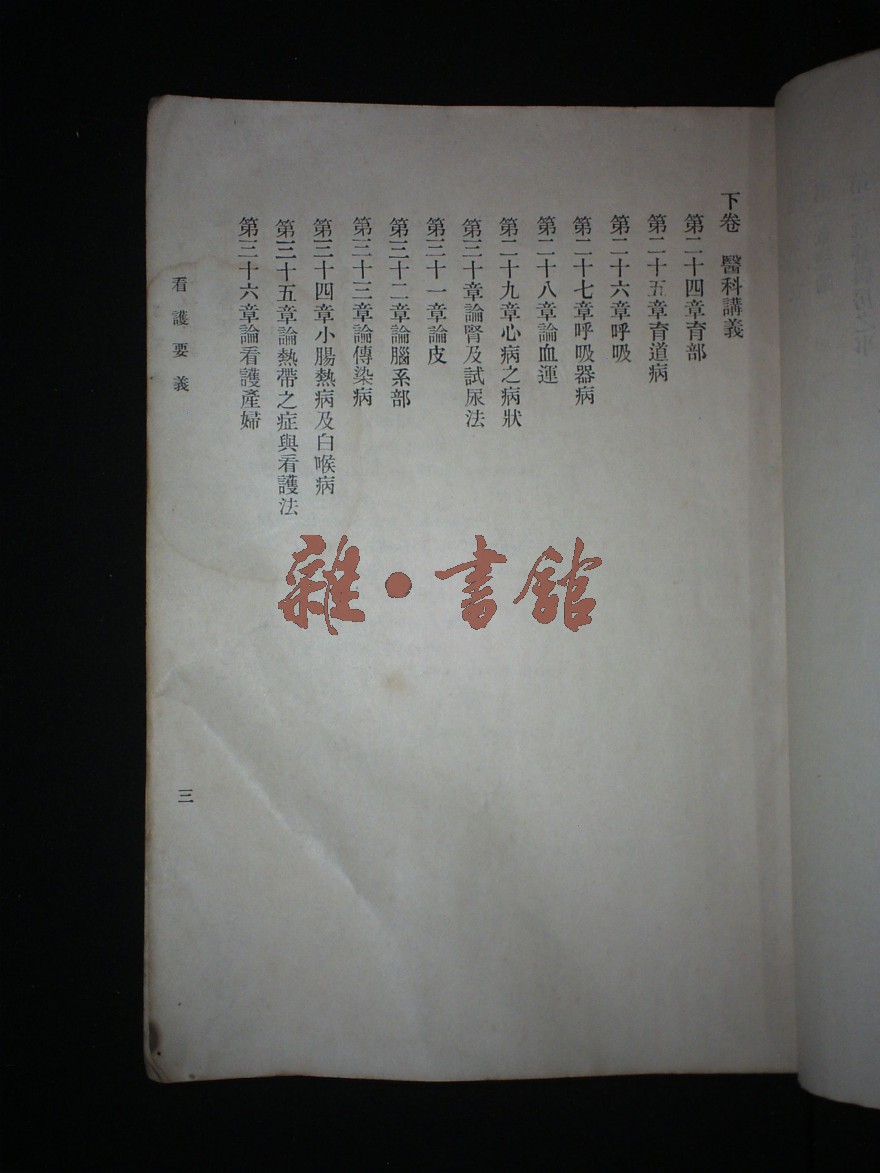 下卷　醫科講義
第二十四章育部
第二十五章育道病
第二十六章呼吸
第二十七章呼吸器病
第二十八章論血運
第二十九章心病之病狀
第三十章論腎及試尿法
第三十一章論皮
第三十二章論腦系部
第三十三章論傳染病
第三十四章小腸熱病及白喉病
第三十五章論熱帶之症與看護法
第三十六章論看護產婦
看護要義
三
雜·書館